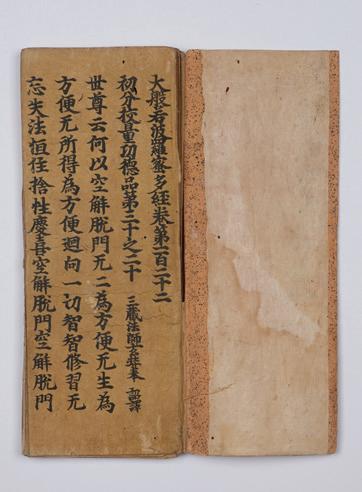 大般若波羅蜜多經卷第一百二十二
初分校量功德品第三十之二十 三藏法師玄奘奉 詔譯
世尊云何以空解脫門无二為方便无生為
方便无所得為方便迴向一切智智修習无
忘失法恒住捨性慶喜空解脫門空解脫門